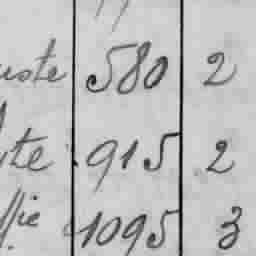 uste 580 2
te 915 2
lie 1095 3